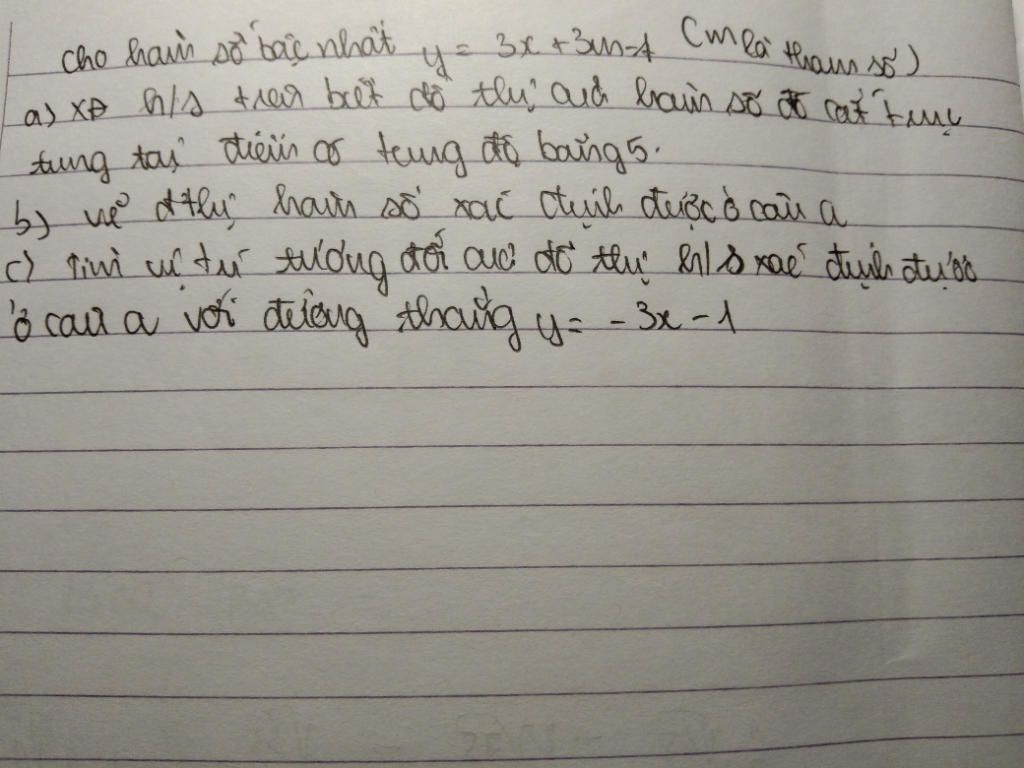 cho hàm số bậc nhất y = 3x + 3m - 1 (m là tham số)
a) XĐ h/s trên biết đồ thị của hàm số đó cắt trục
tung tại điểm có tung độ bằng 5.
b) vẽ đthị hàm số xác định được ở câu a
c) Tìm vị trí tương đối của đồ thị h/s xác định được
ở câu a với đường thẳng y = -3x - 1